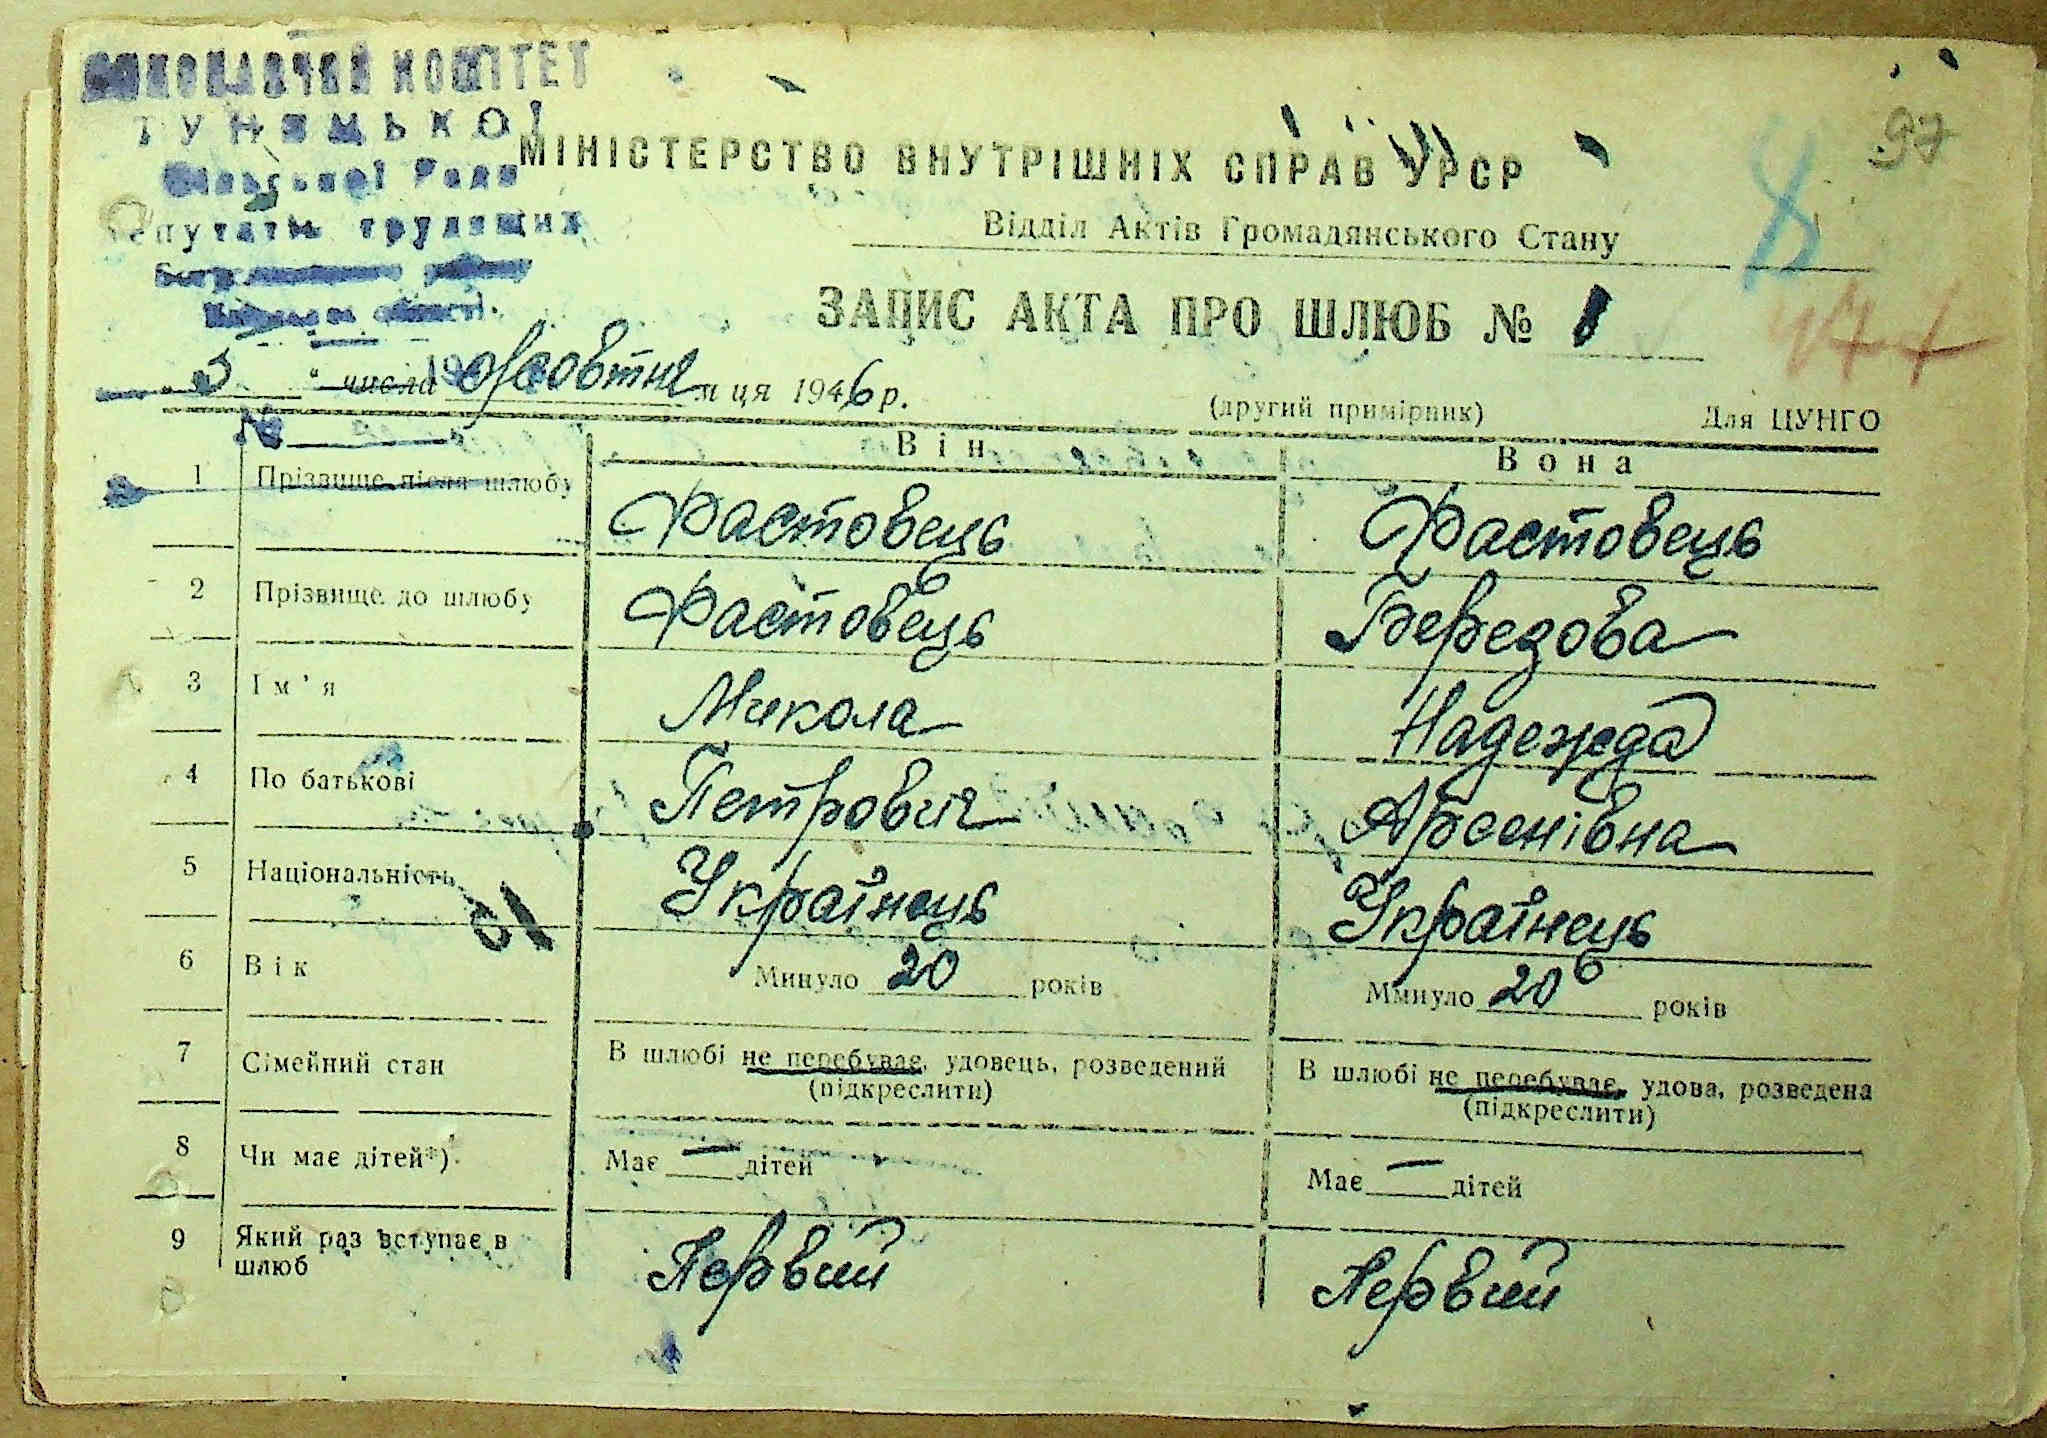 ВИКОНАВЧИЙ КОМІТЕТ
Сільської Ради
депутатів трудящих
97
МІНІСТЕРСТВО ВНУТРІШНІХ СПРАВ УРСР
Відділ Актів Громадянського Стану
8
ЗАПИС АКТА ПРО ШЛЮБ №
"3" числа жовтня м ця 1946 р.
(другий примірник) Для ЦУНГО
№
Він Вона
1 Прізвище після шлюбу Фастовець Фастовець
2 Прізвище до шлюбу Фастовець Березова
3 Ім'я Микола Надежда
4 По батькові Петрович Арсенівна
5 Національність Українець Українець
6 Вік Минуло 20 років Минуло 20 років
7 Сімейний стан В шлюбі не перебуває, удовець, розведений В шлюбі не перебуває, удова, розведена
(підкреслити) (підкреслити)
8 Чи має дітей*) Має — дітей Має — дітей
9 Який раз вступає в шлюб Первий Первий